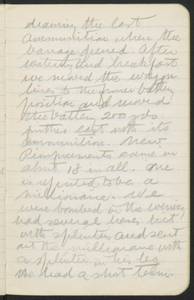 drawing the last
ammunition when the
barrage opened. After
watering and breakfast
we moved the wagon
lines to the former battery
position and moved
the battery 200 yds
further east with its
ammunition. New
Reinforcements came in
about 18 in all. One
is reputed to be a
millionaire. We
were bombed in the evening
had several horses hit
with splinters and sent
out the millionaire with
a splinter in his leg
We had a short team